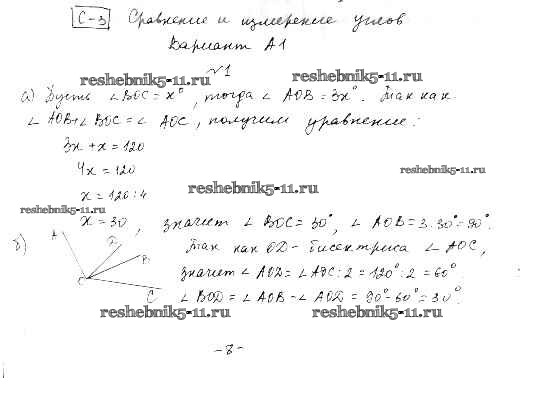 С-3 Сравнение и измерение углов
Вариант А1
№1
reshebnik5-11.ru reshebnik5-11.ru
а) Пусть ∠BOC = x°, тогда ∠ AOB = 3x°. Так как
∠ AOB+∠ BOC = ∠ AOC, получим уравнение:
3x + x = 120
4x = 120 reshebnik5-11.ru
x = 120 : 4 reshebnik5-11.ru
reshebnik5-11.ru
x = 30, значит ∠ BOC = 30°, ∠ AOB = 3·30° = 90°.
б) A D B O C
Так как OD - биссектриса ∠ AOC,
значит ∠ AOD = ∠ AOC : 2 = 120° : 2 = 60°.
∠ BOD = ∠ AOB - ∠ AOD = 90° - 60° = 30°.
reshebnik5-11.ru reshebnik5-11.ru
-8-